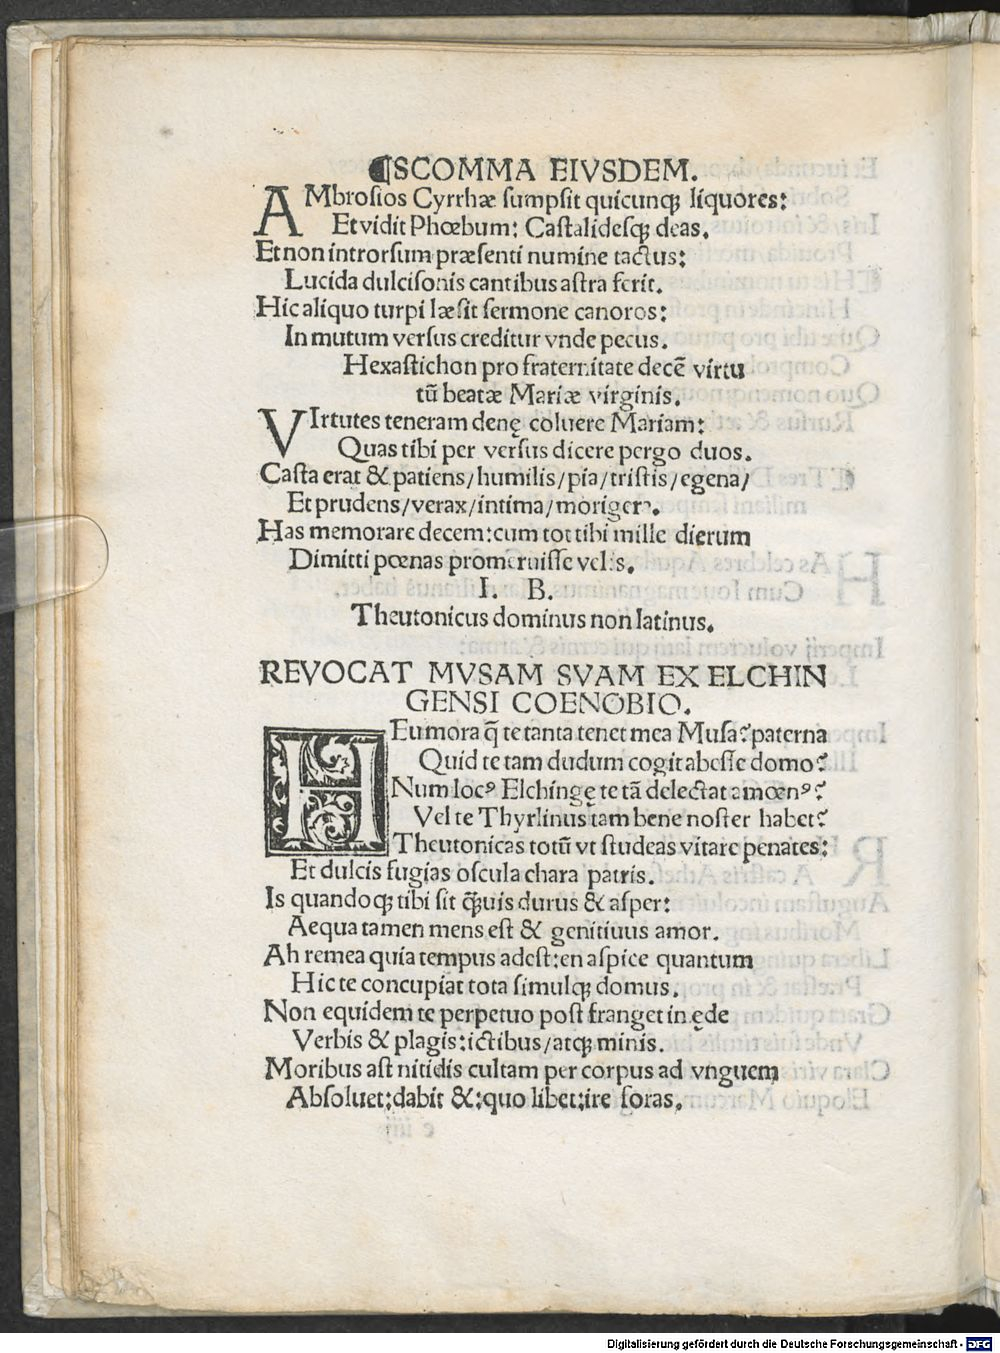 ⁋SCOMMA EIVSDEM.
AMbrosios Cyrrhæ sumpsit quicunqꝫ liquores:
Et vidit Phœbum: Castalidesqꝫ deas.
Et non introrsum præsenti numine tactus:
Lucida dulcisonis cantibus astra ferit.
Hic aliquo turpi læsit sermone canoros:
In mutum versus creditur vnde pecus.
Hexastichon pro fraternitate decẽ virtu
tũ beatæ Mariæ virginis.
VIrtutes teneram denę coluere Mariam:
Quas tibi per versus dicere pergo duos.
Casta erat & patiens/humilis/pia/tristis/egena/
Et prudens/verax/intima/morigera.
Has memorare decem:cum tot tibi mille dierum
Dimitti pœnas promeruisse velis.
I. B.
Theutonicus dominus non latinus.
REVOCAT MVSAM SVAM EX ELCHIN
GENSI COENOBIO.
HEu mora q̃ te tanta tenet mea Musa? paterna
Quid te tam dudum cogit abesse domo?
Num locꝰ Elchingę te tã delectat amœnꝰ?
Vel te Thyrsinus tam bene noster habet?
Theutonicas totũ vt studeas vitare penates:
Et dulcis fugias oscula chara patris.
Is quandoqꝫ tibi sit q̃uis durus & asper:
Aequa tamen mens est & genitiuus amor.
Ah remea quia tempus adest:en aspice quantum
Hic te concupiat tota simulqꝫ domus.
Non equidem te perpetuo post franget in ęde
Verbis & plagis:ictibus/atqꝫ minis.
Moribus ast nitidis cultam per corpus ad vnguem
Absoluet:dabit &:quo libet:ire foras.
e iiij
Digitalisierung gefördert durch die Deutsche Forschungsgemeinschaft - DFG